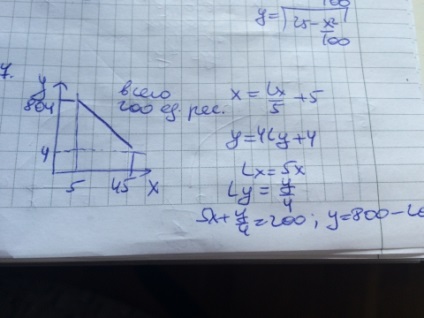 100
y = √25 - x²/100
7.
y
804
4
5 45 x
всего
200 ед. рес.
x = Lx/5 + 5
y = 4Ly + 4
Lx = 5x
Ly = y/4
5x + y/4 = 200; y = 800 - 20